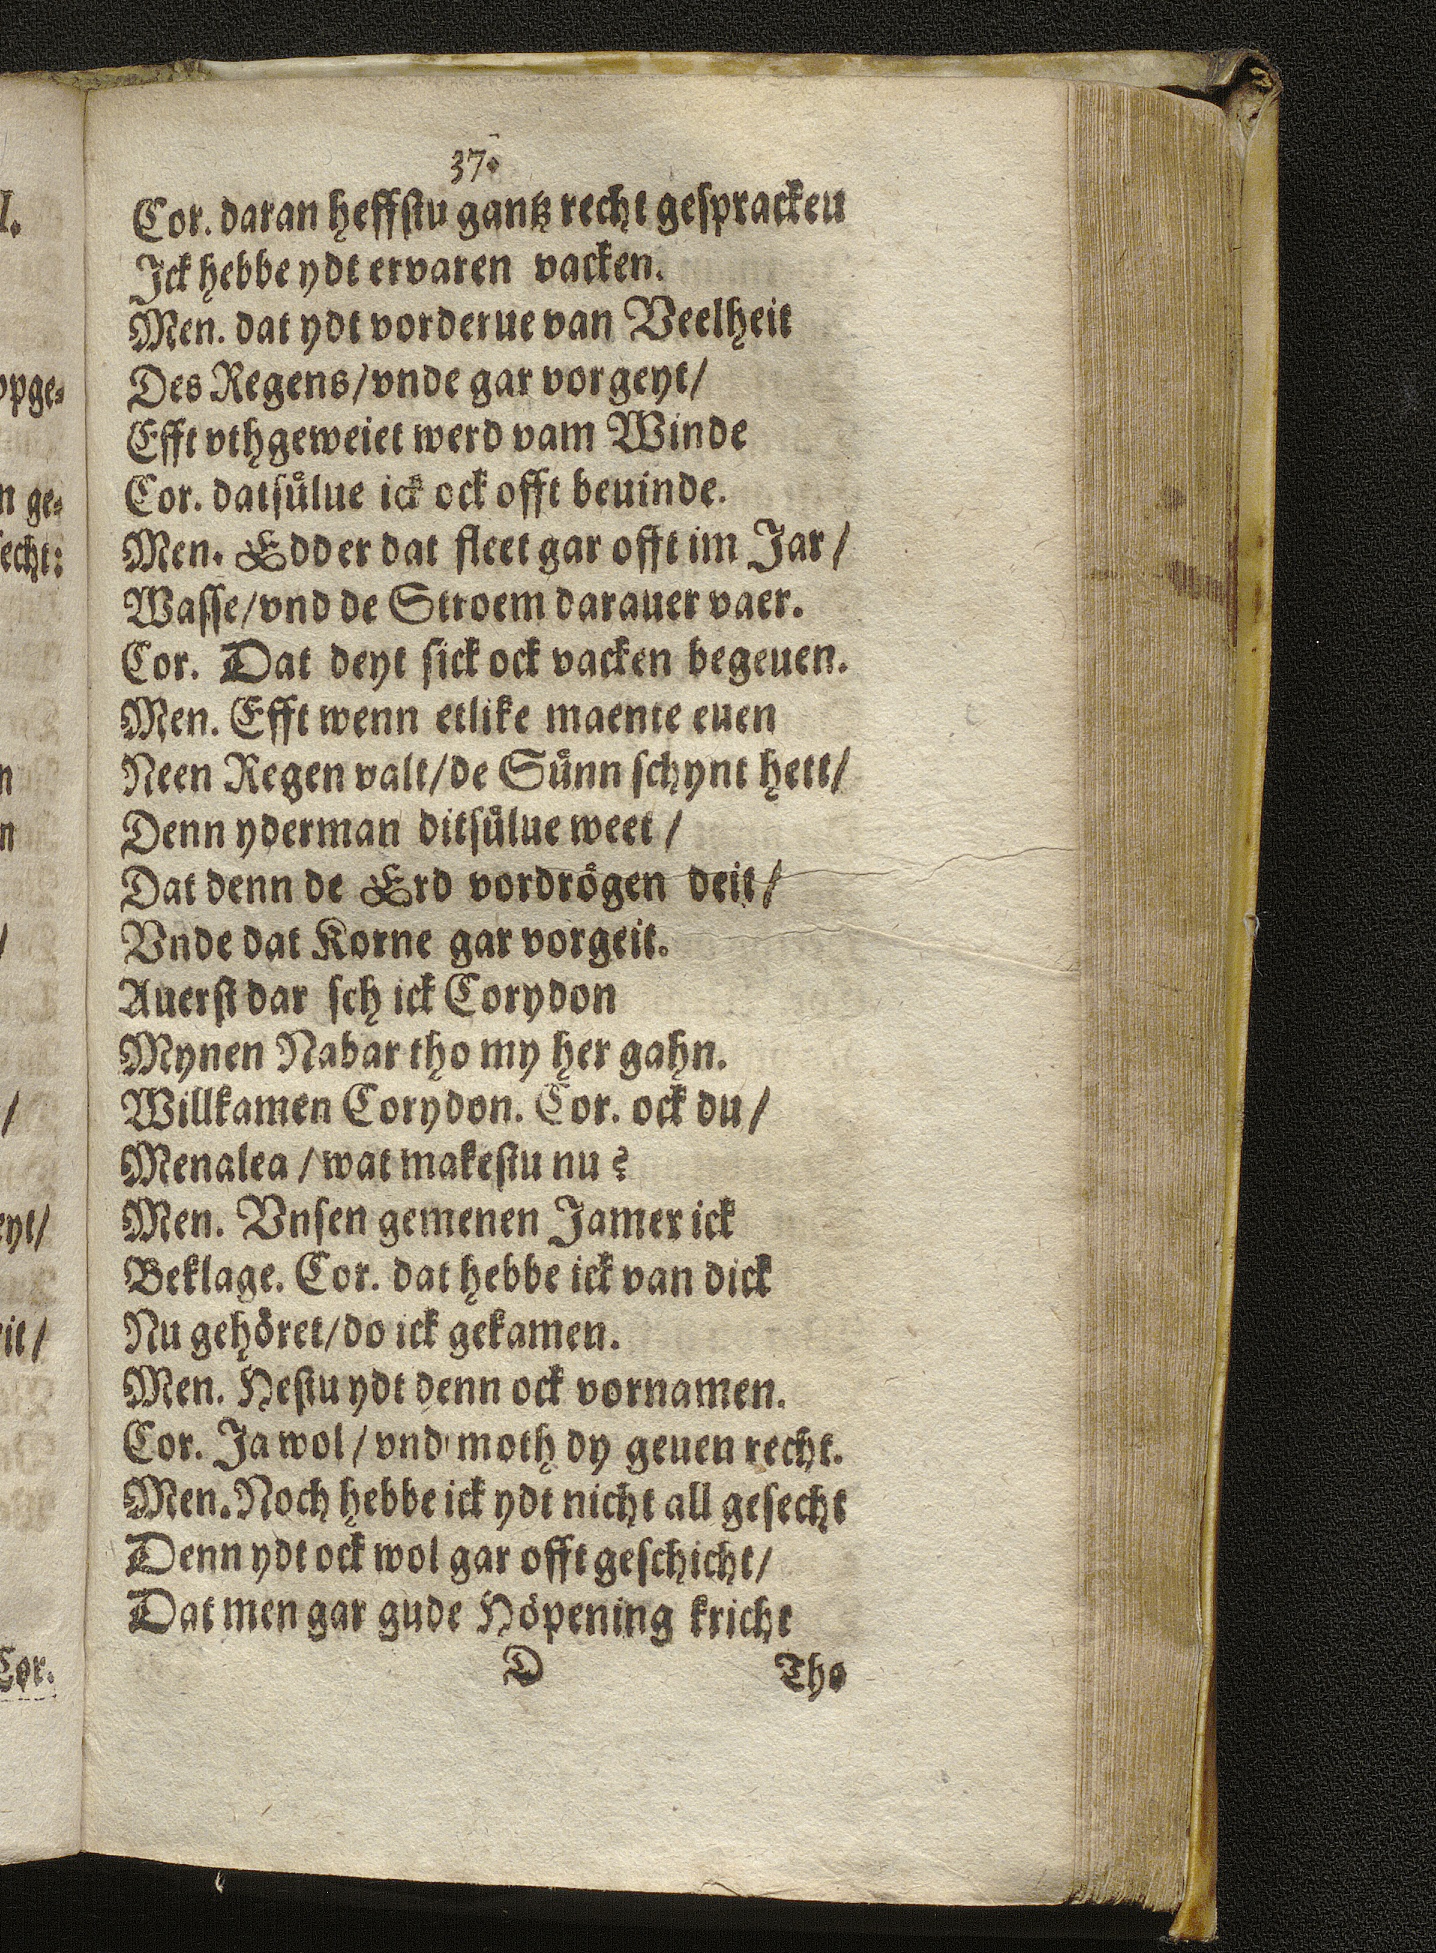 37.
Cor. daran heffstu gantz recht gesprackeu
Ick hebbe ydt ervaren vacken.
Men. dat ydt vorderue van Veelheit
Des Regens/vnde gar vorgeyt/
Efft vthgeweiet werd vam Winde
Cor. datsuͤlue ick ock offt beuinde.
Men. Edder dat fleet gar offt im Jar/
Wasse/vnd de Stroem darauer vaer.
Cor. Dat deyt sick ock vacken begeuen.
Men. Efft wenn etlike maente euen
Neen Regen valt/de Suͤnn schynt hett/
Denn yderman ditsuͤlue weet/
Dat denn de Erd vordroͤgen deit/
Vnde dat Korne gar vorgeit.
Auerst dar seh ick Corydon
Mynen Nabar tho my her gahn.
Willkamen Corydon. Cor. ock du/
Menalca/wat makestu nu?
Men. Vnsen gemenen Jamer ick
Beklage. Cor. dat hebbe ick van dick
Nu gehoͤret/do ick gekamen.
Men. Hestu ydt denn ock vornamen.
Cor. Ja wol/vnd moth dy geuen recht.
Men. Noch hebbe ick ydt nicht all gesecht
Denn ydt ock wol gar offt geschicht/
Dat men gar gude Hoͤpening kricht
D Tho
I.
opge-
n ge-
secht:
n
n
/
/
eyt/
eit/
Cor.